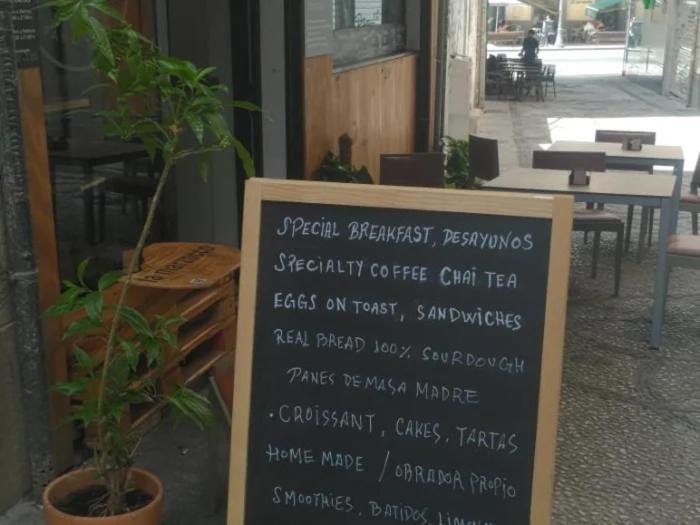 SPECIAL BREAKFAST, DESAYUNOS
SPECIALTY COFFEE CHAI TEA
EGGS ON TOAST, SANDWICHES
REAL BREAD 100% SOURDOUGH
PANES DE MASA MADRE
·CROISSANT, CAKES, TARTAS
HOME MADE / OBRADOR PROPIO
SMOOTHIES, BATIDOS,